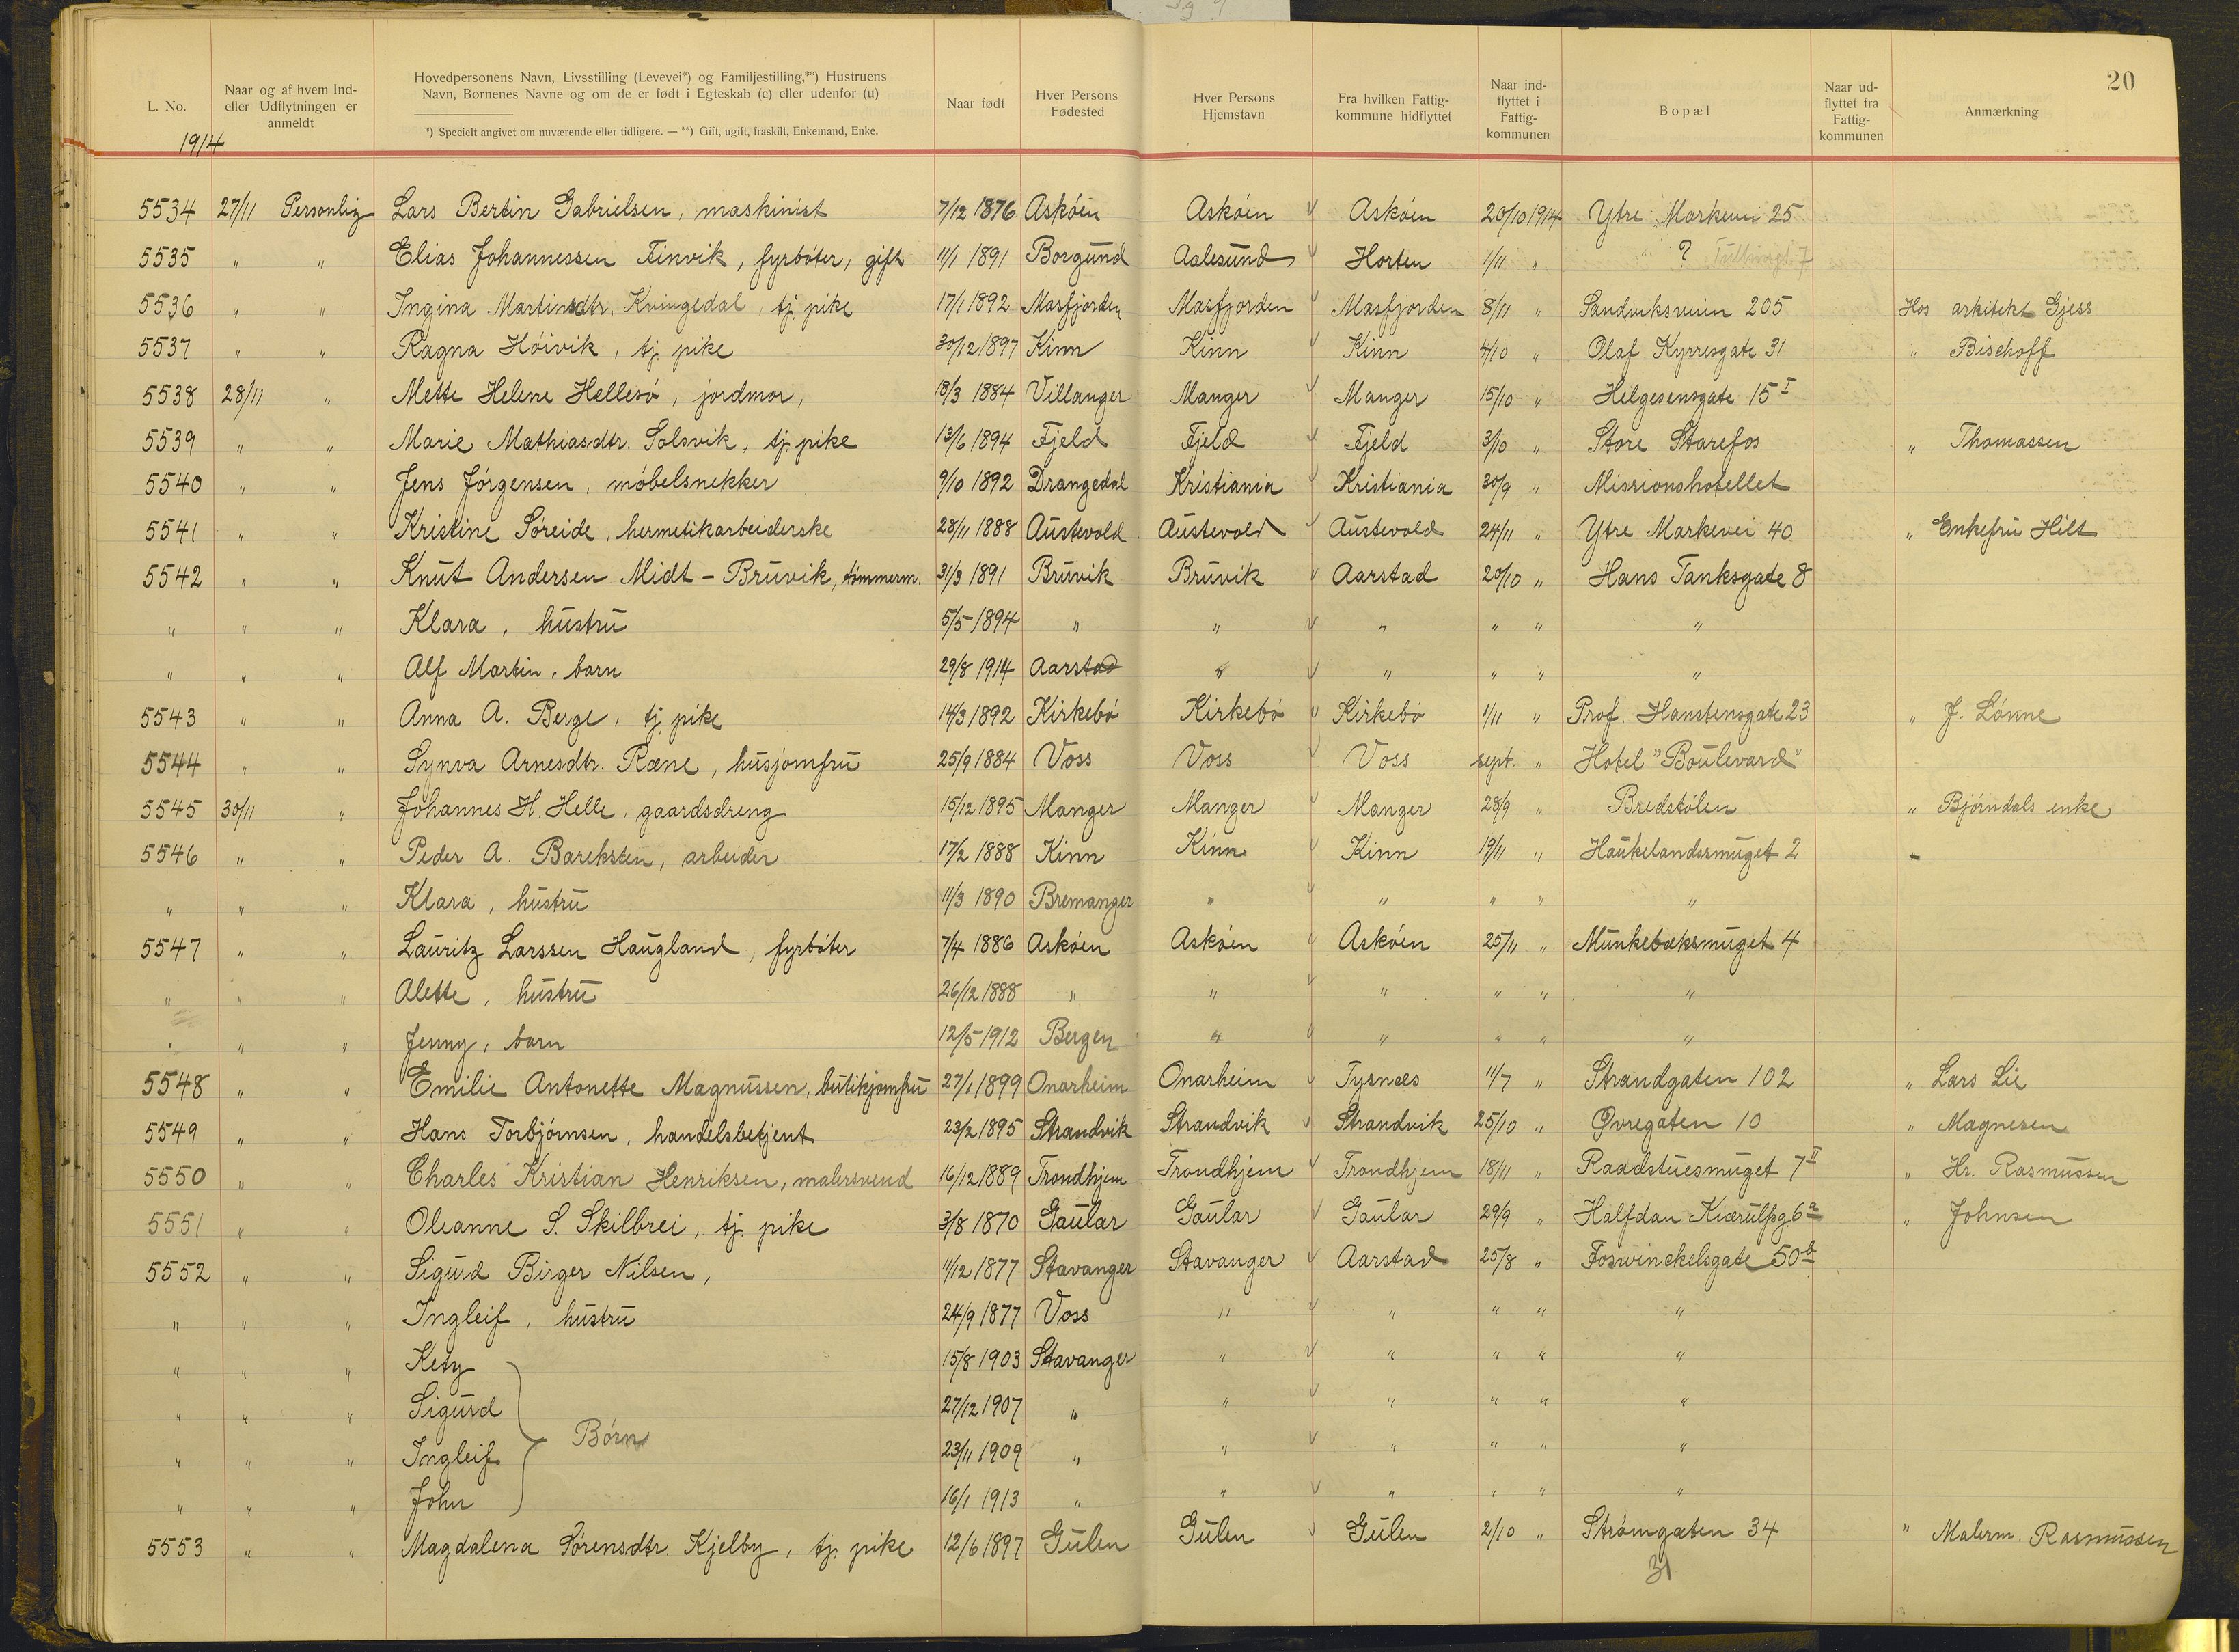 20
L. No.
Naar og af hvem Ind- eller Udflytningen er anmeldt
Hovedpersonens Navn, Livsstilling (Levevei*) og Familjestilling,**) Hustruens Navn, Børnenes Navne og om de er født i Egteskab (e) eller udenfor (u)
*) Specielt angivet om nuværende eller tidligere. — **) Gift, ugift, fraskilt, Enkemand, Enke.
Naar født
Hver Persons Fødested
Hver Persons Hjemstavn
Fra hvilken Fattig- kommune hidflyttet
Naar ind- flyttet i Fattig- kommunen
Bopæl
Naar ud- flyttet fra Fattig- kommunen
Anmærkning
1914
5534 27/11 Personlig Lars Bertin Gabrielsen, maskinist 7/12 1876 Askøen Askøen √ Askøen 20/10 1914 Ytre Markevei 25
5535 " " Elias Johannessen Finvik, fyrbøter, gift 11/1 1891 Borgund Aalesund √ Horten 1/11 " ?
5536 " " Ingina Martinsdtr. Kvingedal, tj. pike 17/1 1892 Masfjorden Masfjorden √ Masfjorden 8/11 " Sandviksveien 205 Hos arkitekt Gjess
5537 " " Ragna Høivik, tj. pike 30/12 1897 Kinn Kinn √ Kinn 4/10 " Olaf Kyrresgate 31 " Bischoff
5538 28/11 " Mette Helene Hellesø, jordmor, 18/3 1884 Villanger Manger √ Manger 15/10 " Helgesensgate 15 I
5539 " " Marie Mathiasdtr. Solsvik, tj. pike 13/6 1894 Fjeld Fjeld √ Fjeld 3/10 " Store Starefos " Thomassen
5540 " " Jens Jørgensen, møbelsnekker 9/10 1892 Drangedal Kristiania √ Kristiania 30/9 " Missionshotellet
5541 " " Kristine Søreide, hermetikarbeiderske 28/11 1888 Austevold Austevold √ Austevold 24/11 " Ytre Markevei 40 " Enkefru Hilt
5542 " " Knut Andersen Midt-Bruvik, tømmerm. 31/3 1891 Bruvik Bruvik √ Aarstad 20/10 " Hans Tanksgate 8
" " " Klara, hustru 5/5 1894 " " √ " " " "
" " " Alf Martin, barn 29/8 1914 Aarstad " √ " " " "
5543 " " Anna A. Berge, tj. pike 14/3 1892 Kirkebø Kirkebø √ Kirkebø 1/11 " Prof. Hanstensgate 23 " J. Lønne
5544 " " Synva Arnesdtr. Ræne, husjomfru 25/9 1884 Voss Voss √ Voss sept. " Hotel "Boulevard"
5545 30/11 " Johannes H. Helle, gaardsdreng 15/12 1895 Manger Manger √ Manger 28/9 " Bredstølen " Bjørndals enke
5546 " " Peder A. Bareksten, arbeider 17/2 1888 Kinn Kinn √ Kinn 19/11 " Haukelandssmuget 2 -
" " " Klara, hustru 11/3 1890 Bremanger " √ " " " "
5547 " " Lauritz Larssen Haugland, fyrbøter 7/4 1886 Askøen Askøen √ Askøen 25/11 " Munkebæksmuget 4
" " " Alette, hustru 26/12 1888 " " √ " " " "
" " " Jenny, barn 12/5 1912 Bergen " √ " " " "
5548 " " Emilie Antonette Magnussen, butikjomfru 27/1 1899 Onarheim Onarheim √ Tysnæs 11/7 " Strandgaten 102 " Lars Lie
5549 " " Hans Torbjørnsen, handelsbetjent 23/2 1895 Strandvik Strandvik √ Strandvik 25/10 " Øvregaten 10 " Magnesen
5550 " " Charles Kristian Henriksen, malersvend 16/12 1889 Trondhjem Trondhjem √ Trondhjem 18/11 " Raadstuesmuget 7 II " Hr. Rasmussen
5551 " " Oleanne S. Skilbrei, tj. pike 3/8 1870 Gaular Gaular √ Gaular 29/9 " Halfdan Kiærulfsg. 6 a " Johnsen
5552 " " Sigurd Birger Nilsen, 11/12 1877 Stavanger Stavanger √ Aarstad 25/8 " Foswinckelsgate 50 b
" " " Ingleif, hustru 24/9 1877 Voss " √ " " " "
" " " Kety 15/8 1903 Stavanger " √ " " " "
" " " Sigurd 27/12 1907 " " √ " " " "
Børn
" " " Ingleif 23/11 1909 " " √ " " " "
" " " John 16/1 1913 " " √ " " " "
5553 " " Magdalena Sørensdtr. Kjelby, tj. pike 12/6 1897 Gulen Gulen √ Gulen 2/10 " Strømgaten 34 " Malerm. Rasmussen
31